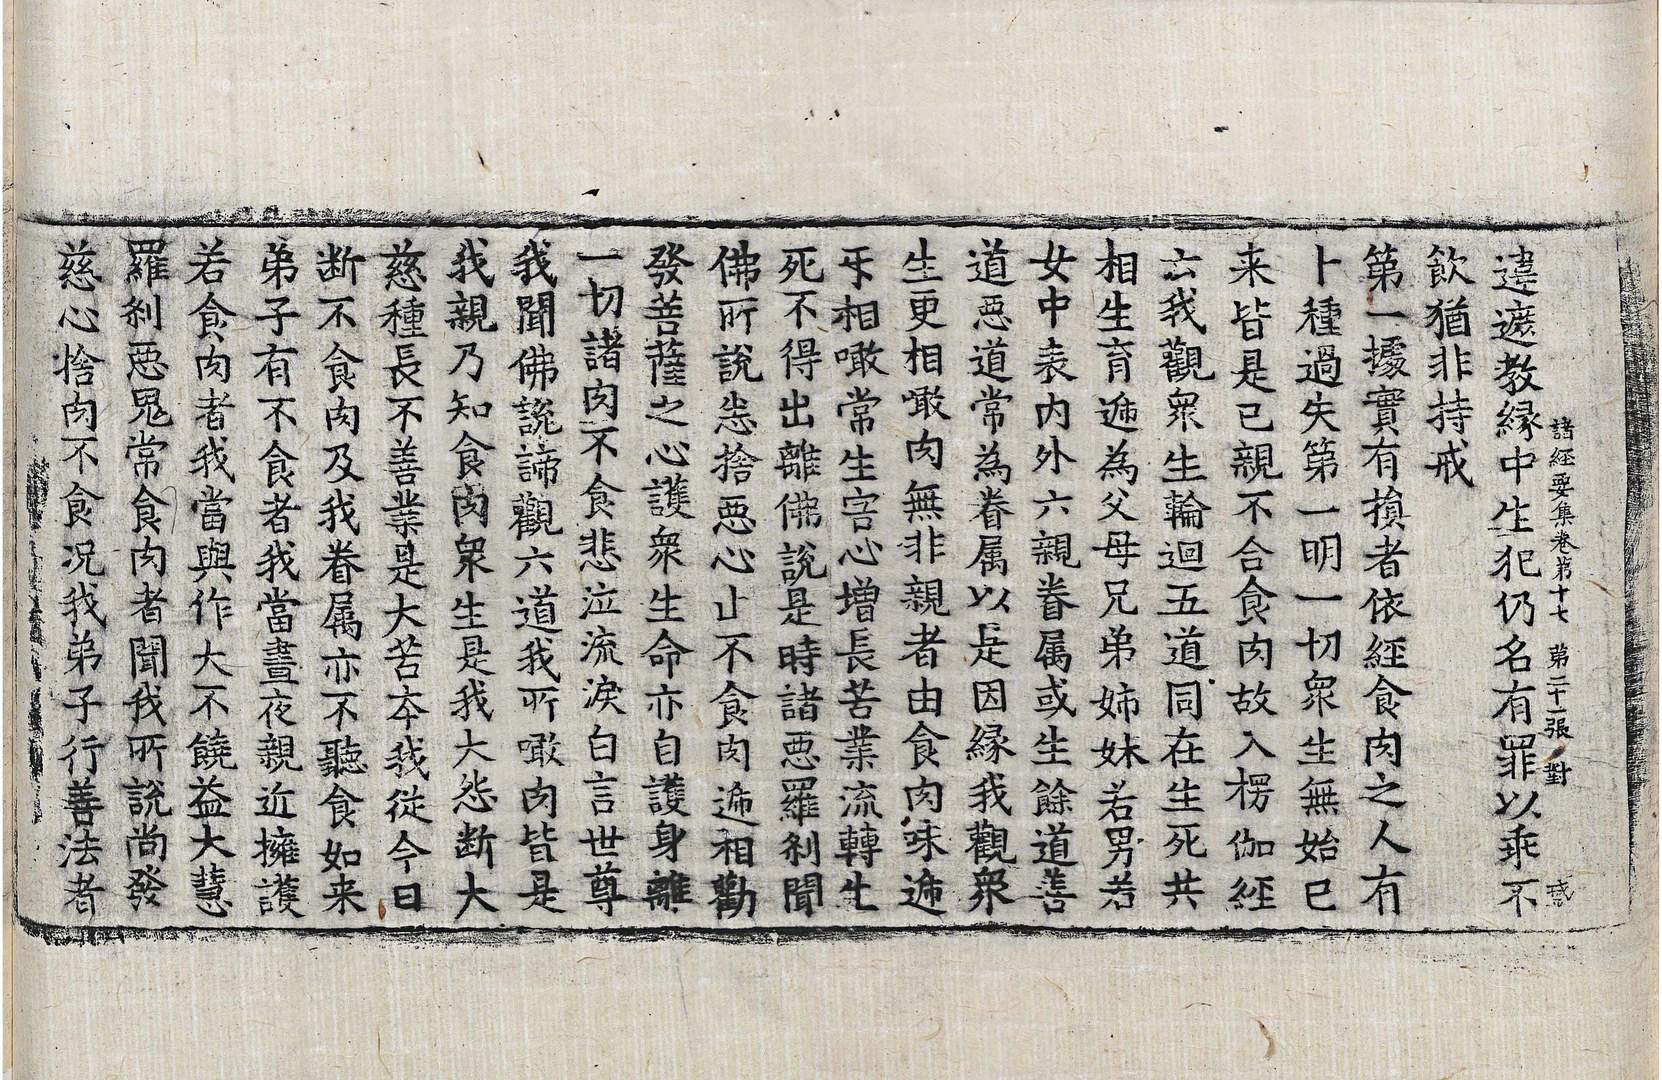 諸經要集卷第十七　第二十一張　對
違遮教縁中生犯仍名有罪以乖不
飲猶非持戒
第一據實有損者依經食肉之人有
卜種過失第一明一切衆生無始已
来皆是已親不合食肉故入楞伽經
云我觀衆生輪迴五道同在生死共
相生育遞為父母兄弟姉妹若男若
女中表内外六親眷属或生餘道善
道惡道常為眷属以是因縁我觀衆
生更相噉肉無非親者由食肉味遞
㸦相噉常生害心增長苦業流轉生
死不得出離佛說是時諸惡羅刹聞
佛所說悉捨惡心止不食肉遞相勸
發菩薩之心護衆生命亦自護身離
一切諸肉不食悲泣流淚白言世尊
我聞佛說諦觀六道我所噉肉皆是
我親乃知食肉衆生是我大怨断大
慈種長不善業是大苦夲我從今日
断不食肉及我眷属亦不聽食如来
弟子有不食者我當晝夜親近擁護
若食肉者我當與作大不饒益大慧
羅刹惡鬼常食肉者聞我所說尚發
慈心捨肉不食况我弟子行善法者